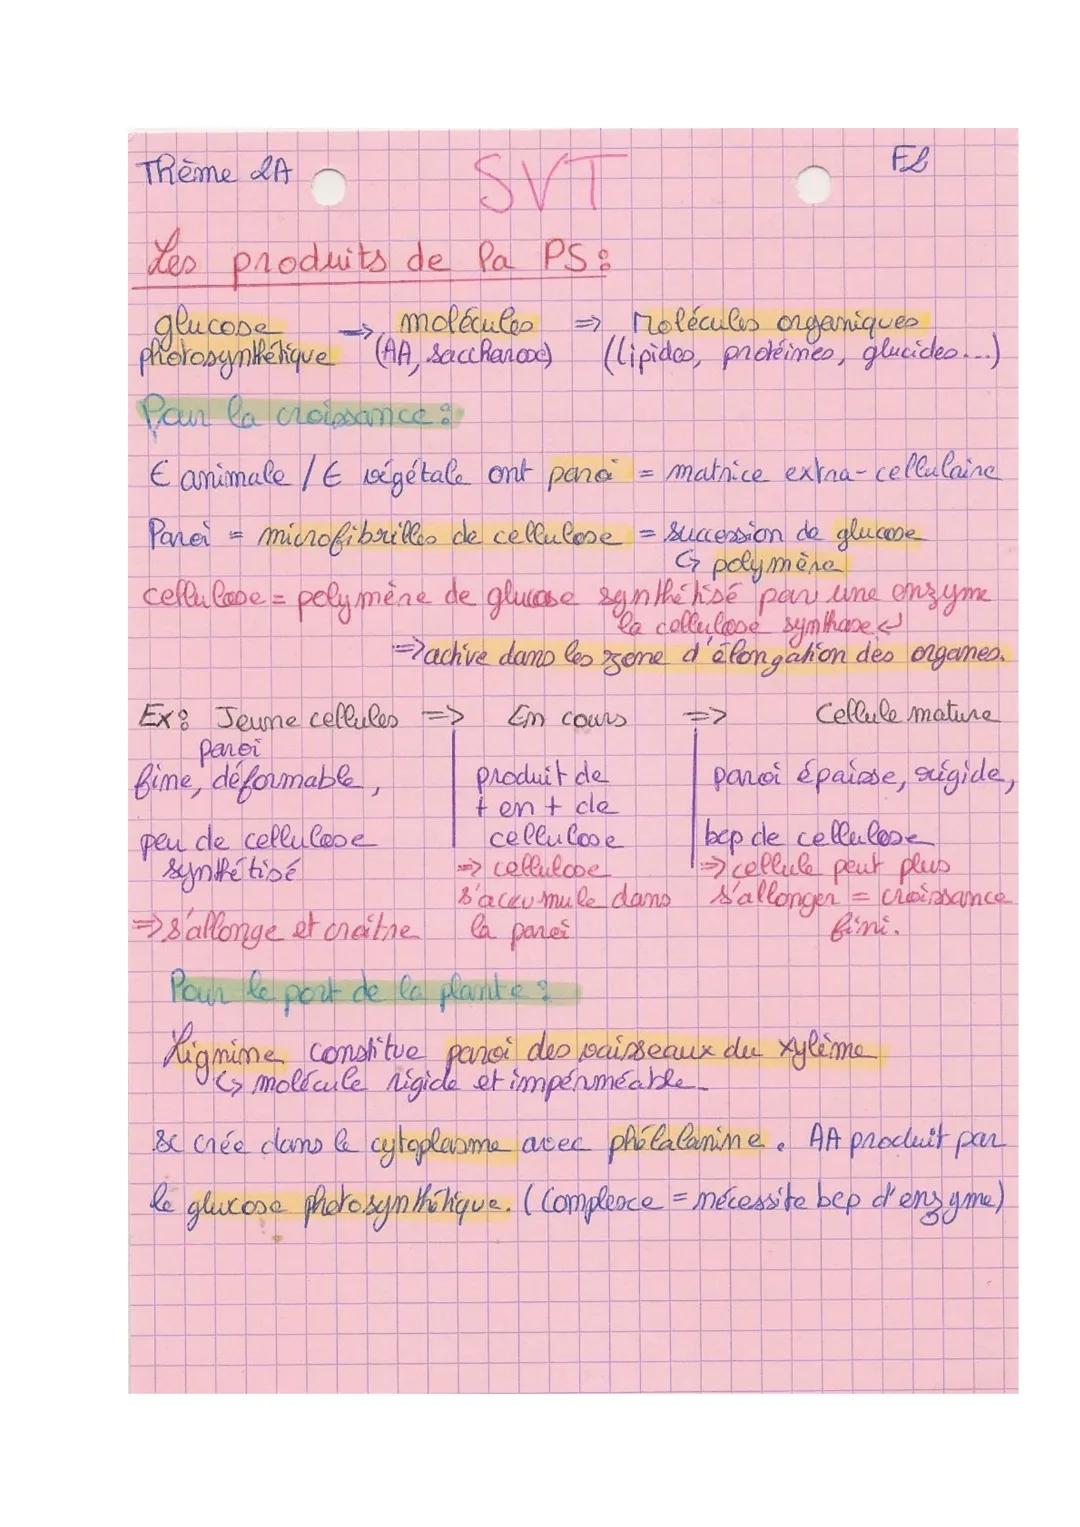 Thème 2A
SVT
F2
Les produits de la PS :
glucose → molécules => molécules organiques
photosynthétique (AA, saccharose) (lipides, protéines, glucides...)
Pour la croissance :
€ animale / € végétale ont paroi = matrice extra-cellulaire
Paroi = microfibrilles de cellulose = succession de glucose
↳ polymère
cellulose = polymère de glucose synthétisé par une enzyme
la cellulose synthase ↲
=> active dans les zone d'élongation des organes.
Ex : Jeune cellules => En cours => Cellule mature
paroi
fine, déformable,
peu de cellulose
synthétisé
=> s'allonge et croître
produit de
+ en + de
cellulose
=> cellulose
s'accumule dans
la paroi
paroi épaisse, rigide,
bcp de cellulose
=> cellule peut plus
s'allonger = croissance
fini.
Pour le port de la plante :
Lignine, constitue paroi des vaisseaux du xylème
↳ molécule rigide et imperméable
se crée dans le cytoplasme avec phélalanine. AA produit par
le glucose photosynthétique. (Complexe = nécessite bcp d'enzyme)